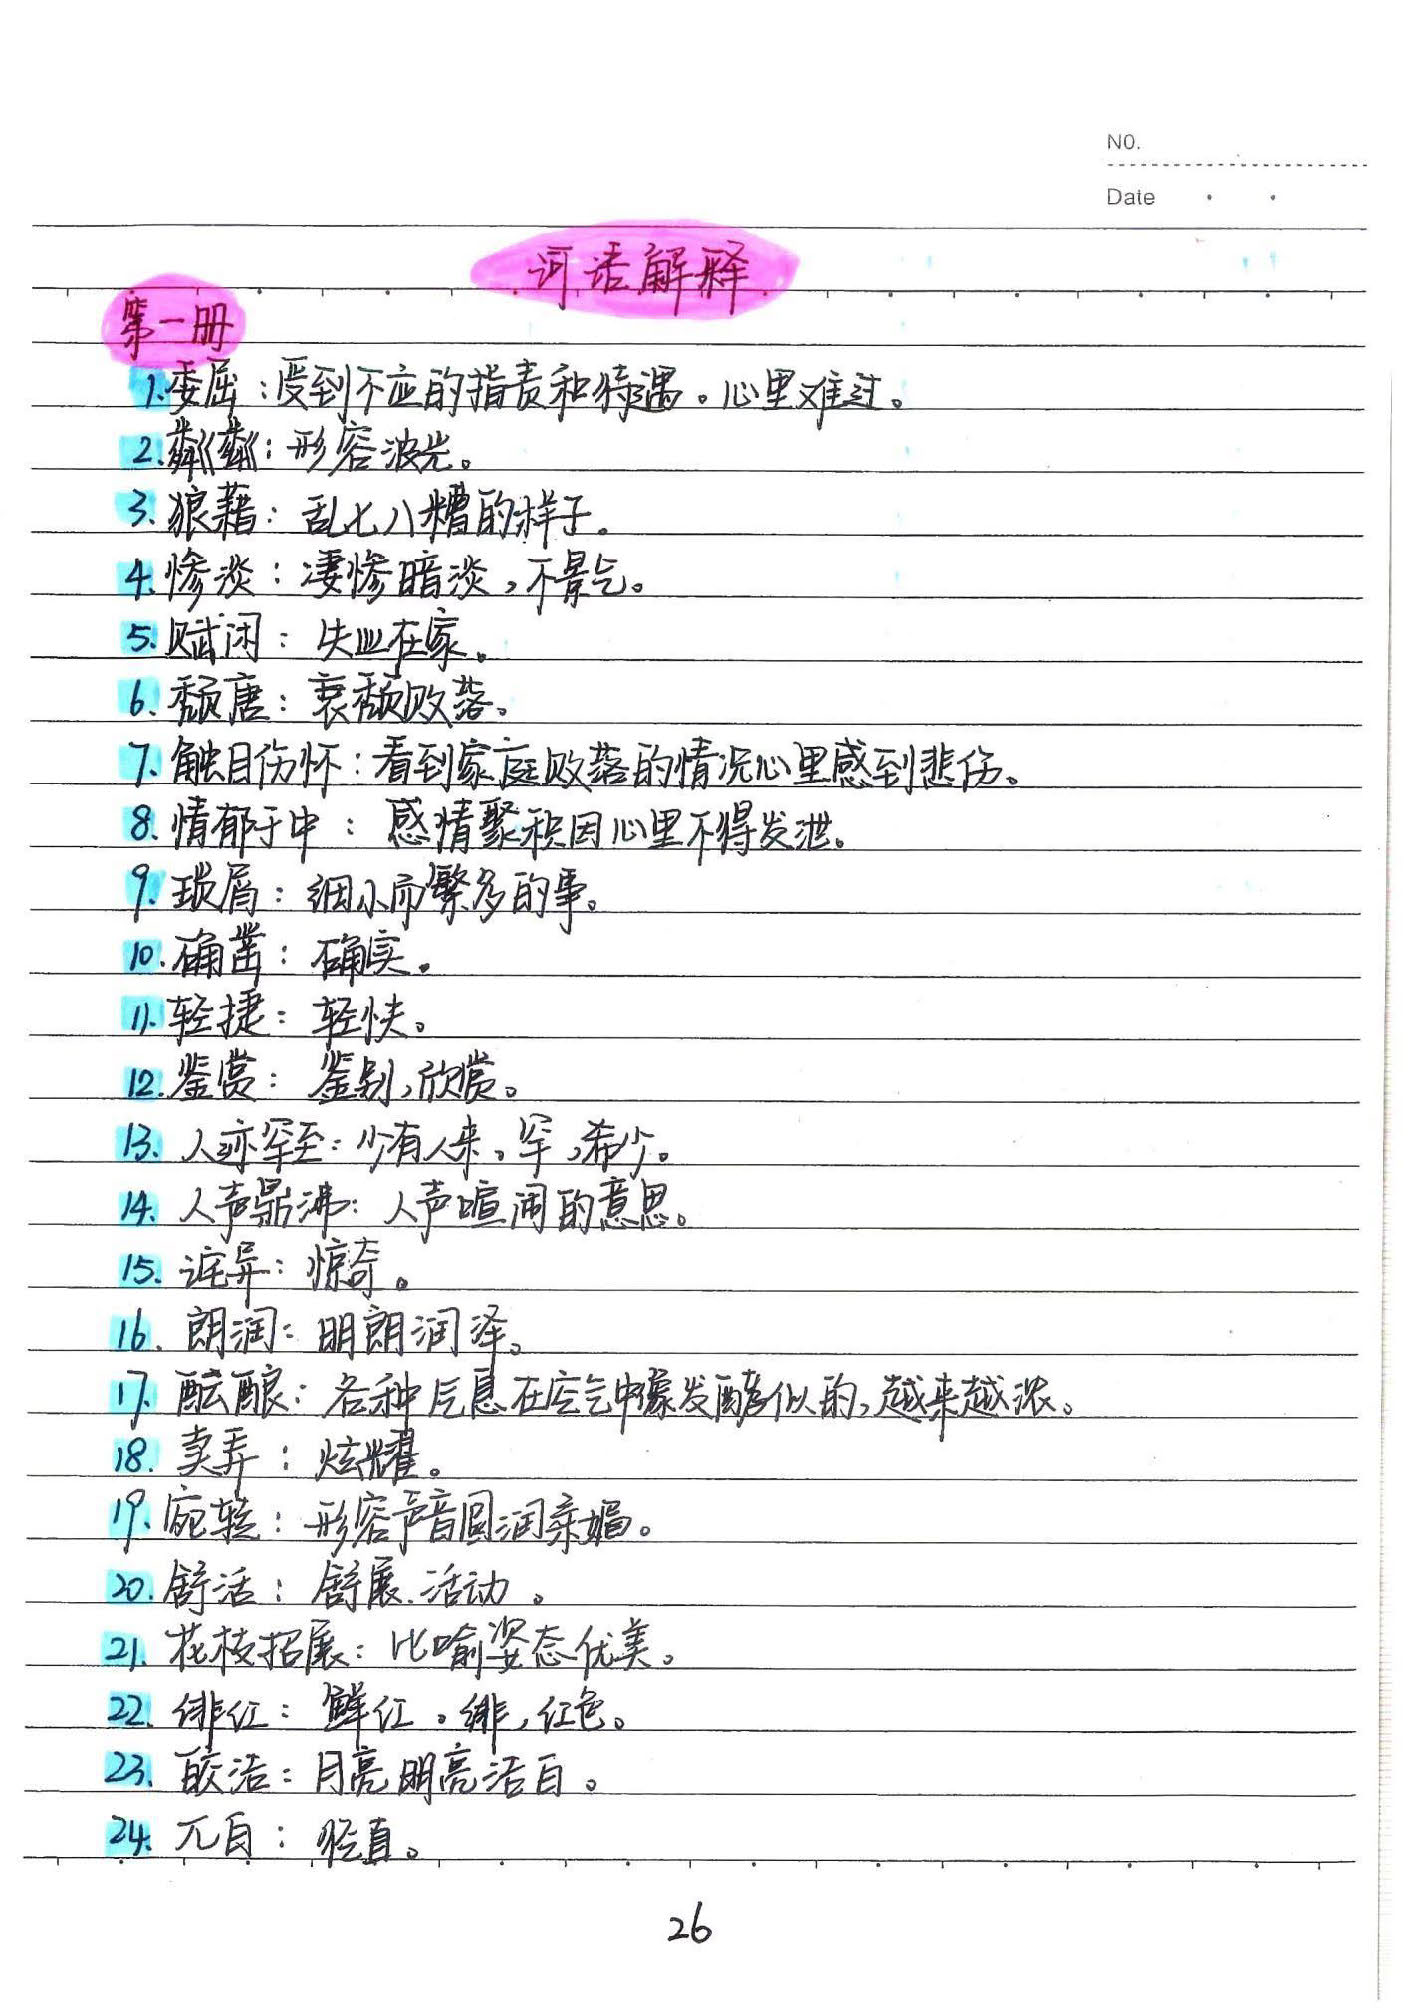 NO.
Date
词语解释
第一册
1.委屈:受到不应的指责和待遇。心里难过。
2.粼粼:形容波光。
3.狼藉:乱七八糟的样子。
4.惨淡:凄惨暗淡,不景气。
5.赋闲:失业在家。
6.颓唐:衰颓败落。
7.触目伤怀:看到家庭败落的情况心里感到悲伤。
8.情郁于中:感情聚积因心里不得发泄。
9.琐屑:细小而繁多的事。
10.确凿:确实。
11.轻捷:轻快。
12.鉴赏:鉴别,欣赏。
13.人迹罕至:少有人来。罕,希少。
14.人声鼎沸:人声喧闹的意思。
15.诧异:惊奇。
16.朗润:明朗润泽。
17.酝酿:各种气息在空气中像发酵似的,越来越浓。
18.卖弄:炫耀。
19.宛转:形容声音圆润柔媚。
20.舒活:舒展.活动。
21.花枝招展:比喻姿态优美。
22.绯红:鲜红。绯,红色。
23.皎洁:月亮明亮洁白。
24.兀自:径直。
26